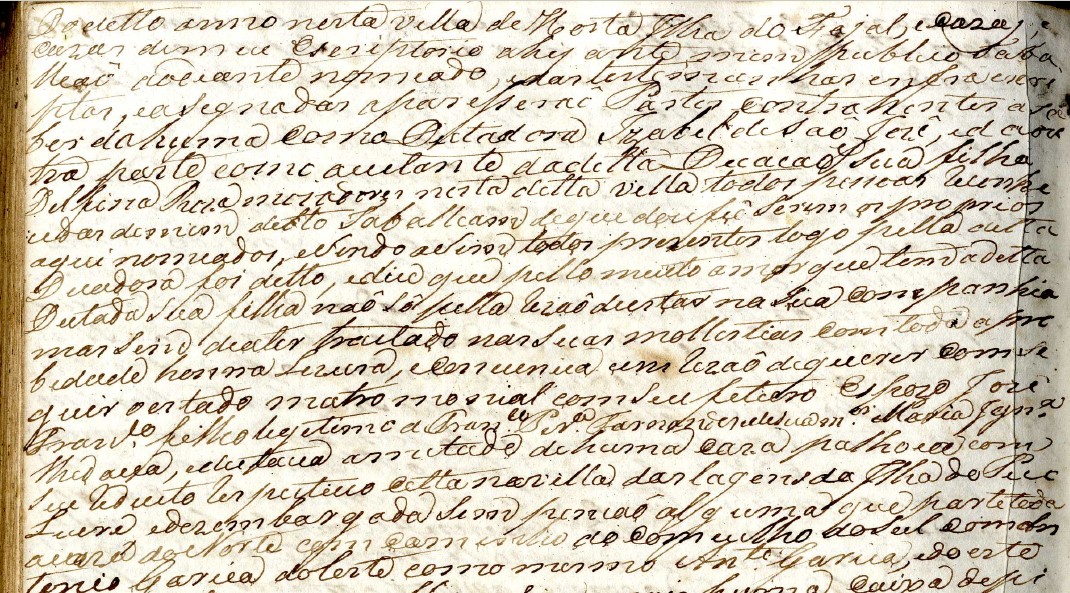 Do ditto anno nesta villa de Horta Ilha do Fajal, e caza, e
cazas de meu Escriptorio ahy ante mim publico Taba
lliaõ ao diante nomeado, e das testimunhas enfra escri
ptas, e asegnadas aparesseraõ Partes contrahentes a sa
ber da huma como Dutadora Izabel de Saõ José, e da ou
tra parte como aceitante da ditta Ducacaõ sua filha
Delfina Roza moradores nesta ditta villa todos pessoas reconhe
cidas de mim ditto Taballiam de que dou fé serem os proprios
aqui nomeados, e sendo asim todos presentes logo pella ditta
Duadora foi ditto, e dice que pello muito amor que tem a ditta
Dutada sua filha naõ só pella rezaõ de estar na sua companhia
mas sim de a ter tratado nas suas mollestias com toda a
bidade honra em rezaõ de querer conse
guir o estado matrimonial com seu feturo Espozo José
Fran.co filho legitimo de Fran.co Per.a e de sua m.er Maria Igna
the dava, e dutava ametade de huma caza palhoça com
seu reduito citta na villa das lagens da Ilha do Pico
Livre e dezembargada sem pençaõ alguma que parte toda
do Norte com caminho do Comcelho do Sul com An
tonio Garcia do leste com o mesmo Ant.o Garcia, e do oeste
huma Caixa de pi